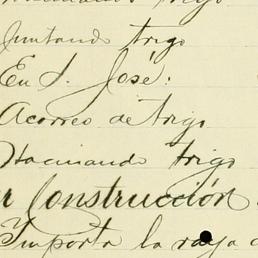 Hacinando trigo
Juntando trigo
En S. José:
Acarreo de trigo
Hacinando trigo
r Construcción
Importa la raya d